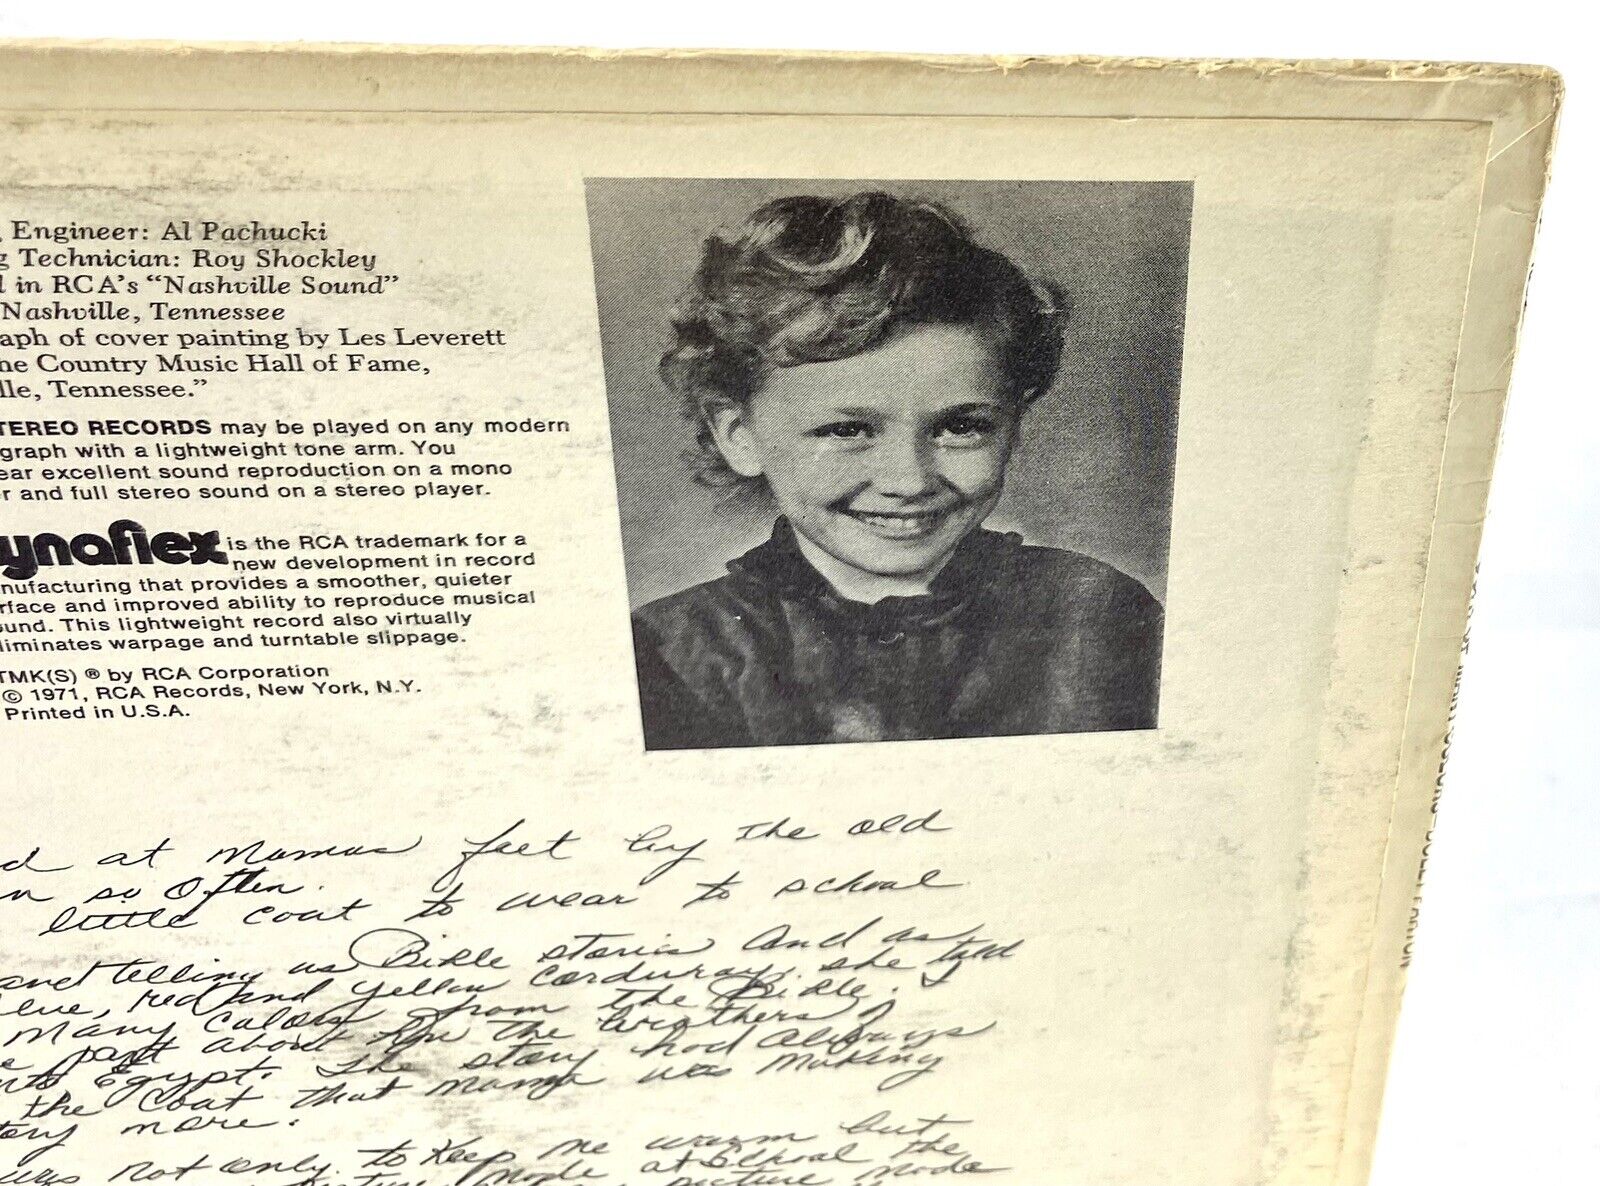 Engineer: Al Pachucki
g Technician: Roy Shockley
d in RCA's "Nashville Sound"
Nashville, Tennessee
aph of cover painting by Les Leverett
he Country Music Hall of Fame,
lle, Tennessee."
TEREO RECORDS may be played on any modern
graph with a lightweight tone arm. You
ear excellent sound reproduction on a mono
r and full stereo sound on a stereo player.
ynaflex is the RCA trademark for a
new development in record
nufacturing that provides a smoother, quieter
rface and improved ability to reproduce musical
und. This lightweight record also virtually
liminates warpage and turntable slippage.
TMK(S) ® by RCA Corporation
© 1971, RCA Records, New York, N.Y.
Printed in U.S.A.
d at Mamas feet by the old
n so often.
little coat to wear to school
and telling us Bible stories and as
lue, red and yellow corduroy. she told
Many Colors from the Bible. I
e part about how the brothers
nto Egypt. The story had always
the coat that mama was making
tory more.
was not only to keep me warm but
picture made at school the
picture made
COLORS DOLLY PARTON